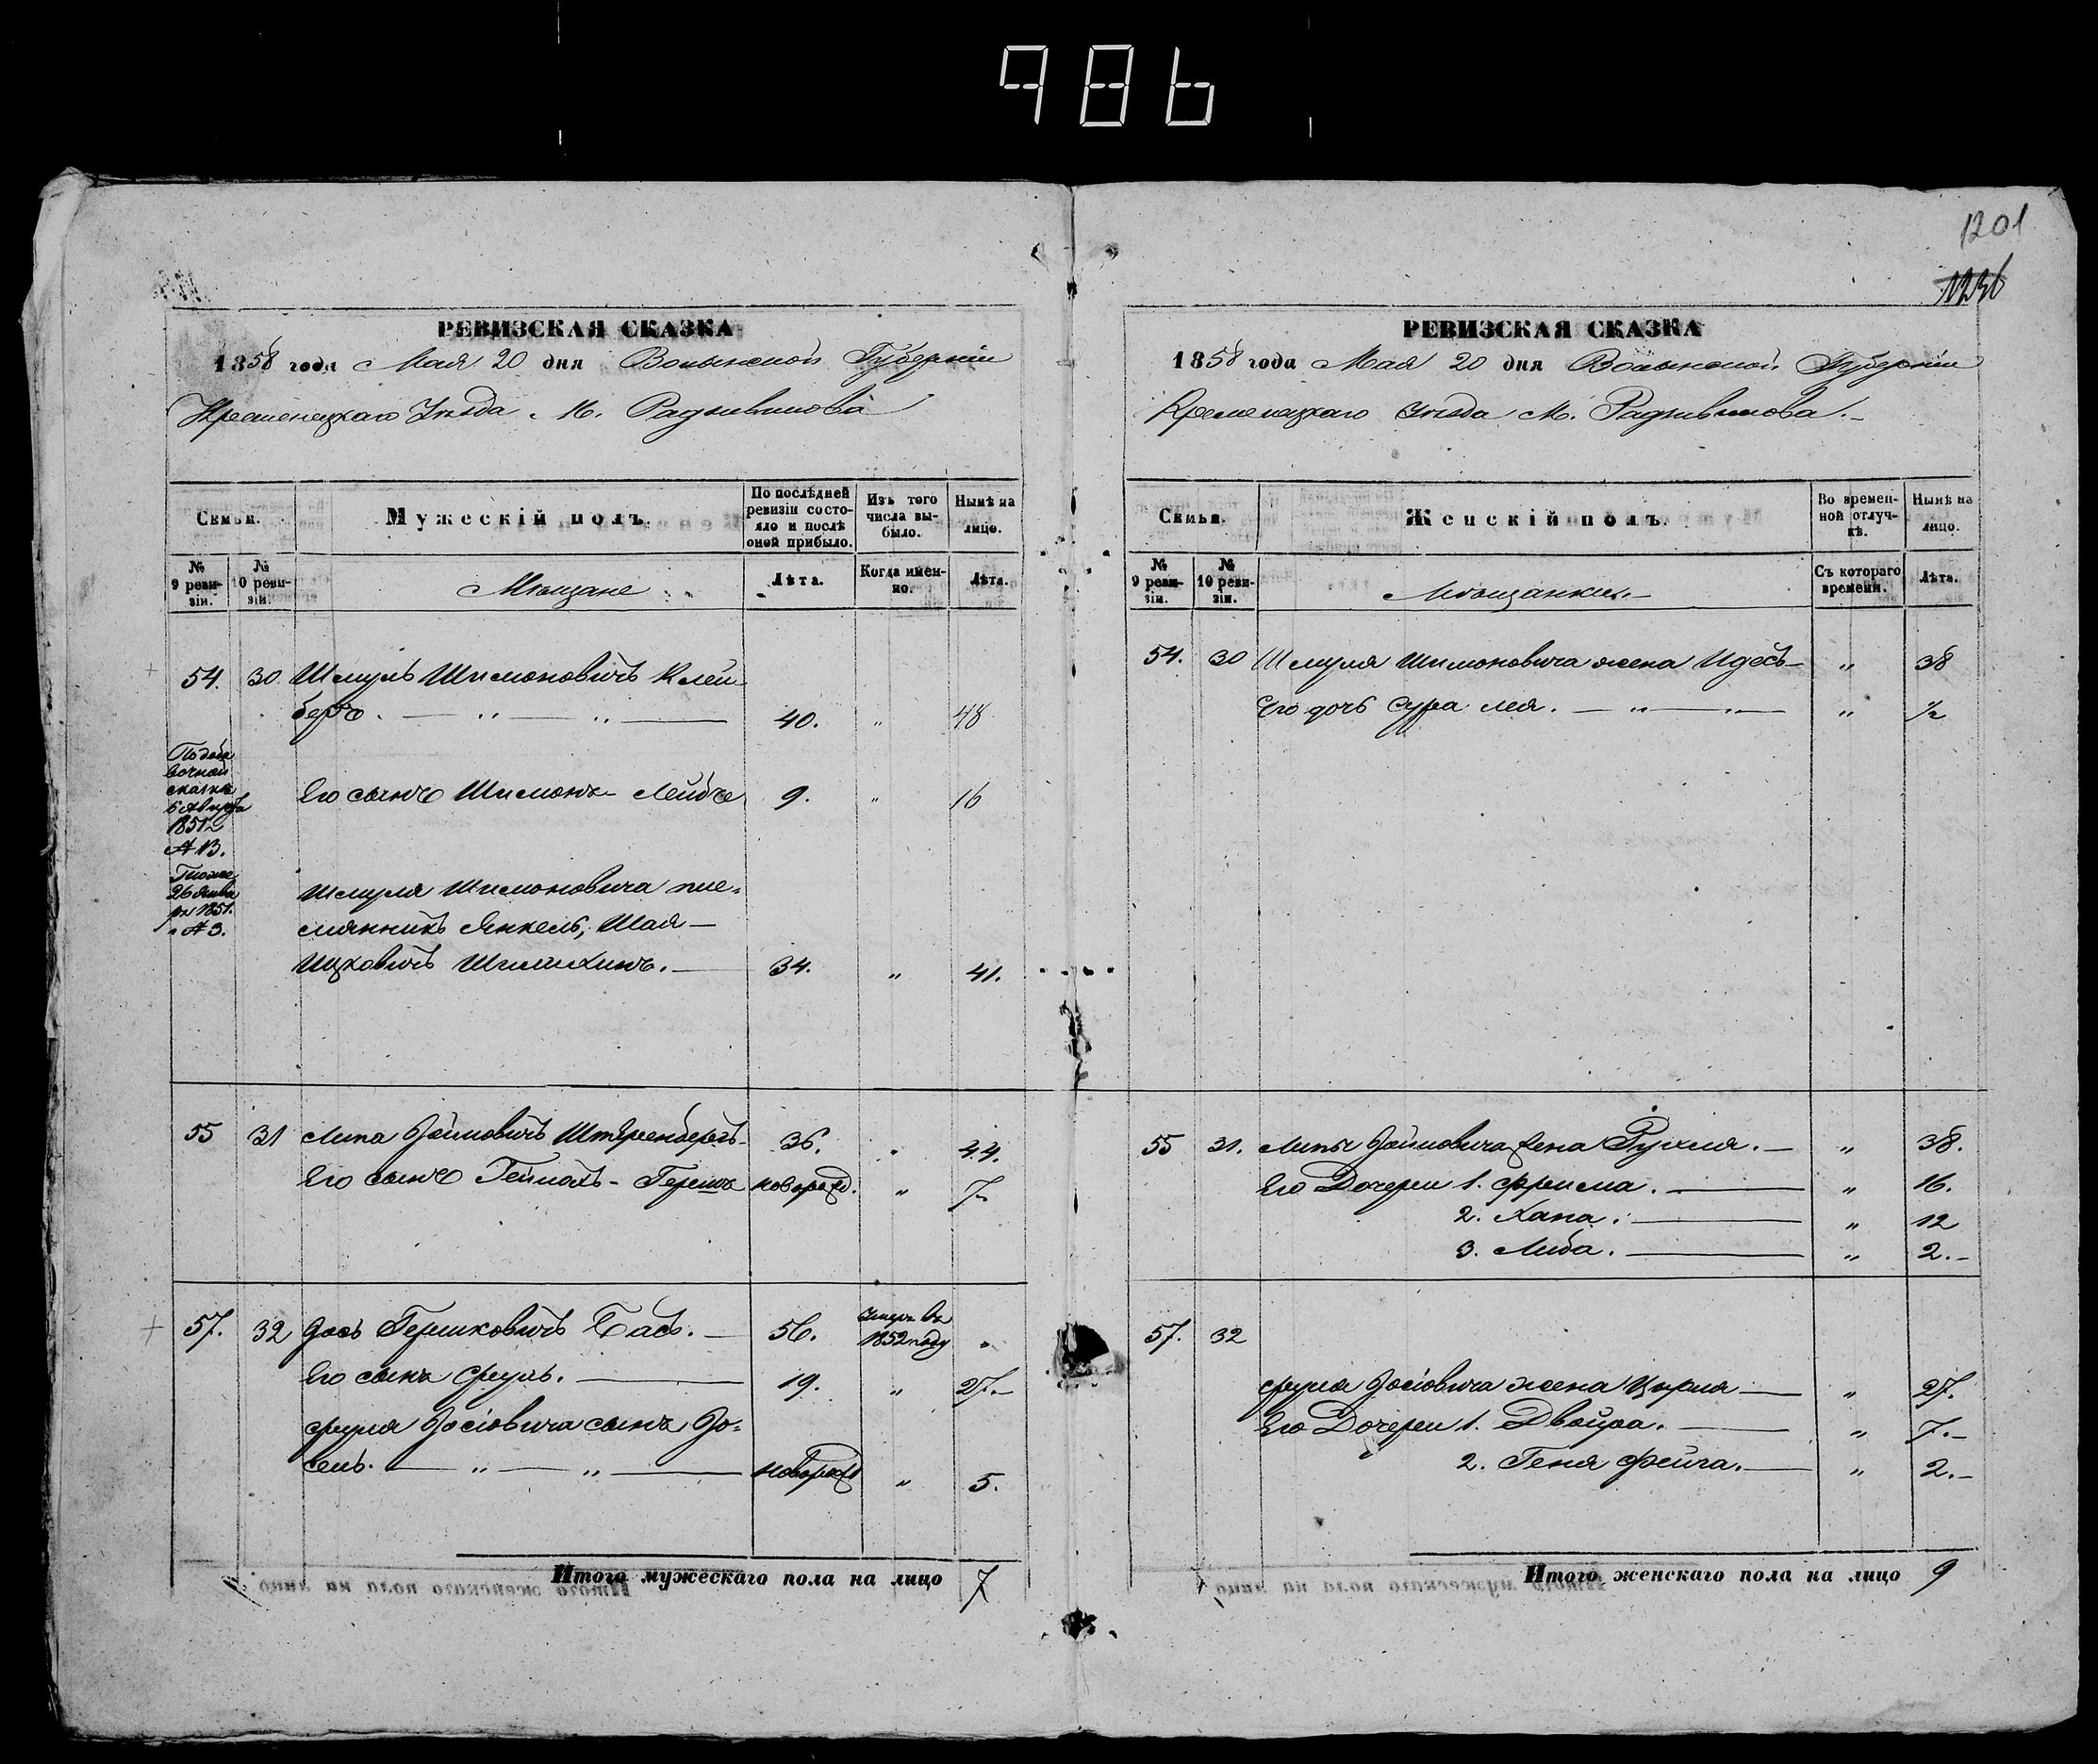 986
1201
1236
РЕВИЗСКАЯ СКАЗКА
1858 года Мая 20 дня Волынской Губерніи
Кременецкаго Уѣзда М. Радзивилова
Семьи.
Мужескій полъ.
По послѣдней ревизіи состояло и послѣ оной прибыло.
Изъ того числа выбыло.
Нынѣ на лицо.
№ 9 ревизіи.
№ 10 ревизіи.
Мѣщане
Лѣта.
Когда именно.
Лѣта.
54. 30. Шмуль Шимоновичъ Клей-
беръ. — „ — „ — 40. „ 48
По доба
вочной
сказкѣ
6 Августа
1851 г.
№ 13.
Его сынъ Шимонъ-Лейбъ 9. „ 16
Тоже
26 Янва
ря 1851.
№ 3.
Шмуля Шимоновича пле-
мянникъ Янкель, Шая —
Ицковичъ 34. „ 41.
55 31 Липа Йойновичъ Штеренбергъ- 36. „ 44.
Его сынъ Гейнахъ-Гершъ новорожд. „ 7-
57. 32 Йось Гершковичъ Басъ. — 56. Умеръ въ 1852 году „
Его сынъ Фроль. — 19. „ 27.-
Йосіовича сынъ Йо-
сель. — „ — „ — новорожд „ 5.
Итого мужескаго пола на лицо 7
РЕВИЗСКАЯ СКАЗКА
1858 года Мая 20 дня Волынской Губерніи
Кременецкаго Уѣзда М. Радзивилова.-
Семьи.
Женскій полъ.
Во временной отлучкѣ.
Нынѣ на лицо.
№ 9 ревизіи.
№ 10 ревизіи.
Мѣщанки.-
Съ котораго времени.
Лѣта.
54. 30 Шмуля Шимоновича жена Идесъ- „ 38
Его дочь Сура Лея. — „ — „ — „ ½
55 31. Липы Йойновича жена Рухля. — „ 38.
Его Дочери 1. Фрима. — „ 16.
2. Хана. — „ 12
3. Либа. — „ 2.-
57. 32
Йосіовича жена Цирля — „ 27.
Его Дочери 1. Двойра. — „ 7.-
2. Геня Фейга. — „ 2.-
Итого женскаго пола на лицо 9